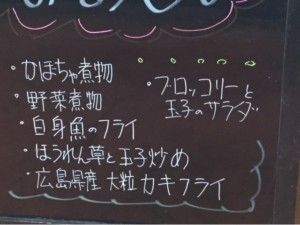 ・かぼちゃ煮物
・野菜煮物
・白身魚のフライ
・ほうれん草と玉子炒め
・広島県産 大粒 カキフライ
・ブロッコリーと
玉子のサラダ